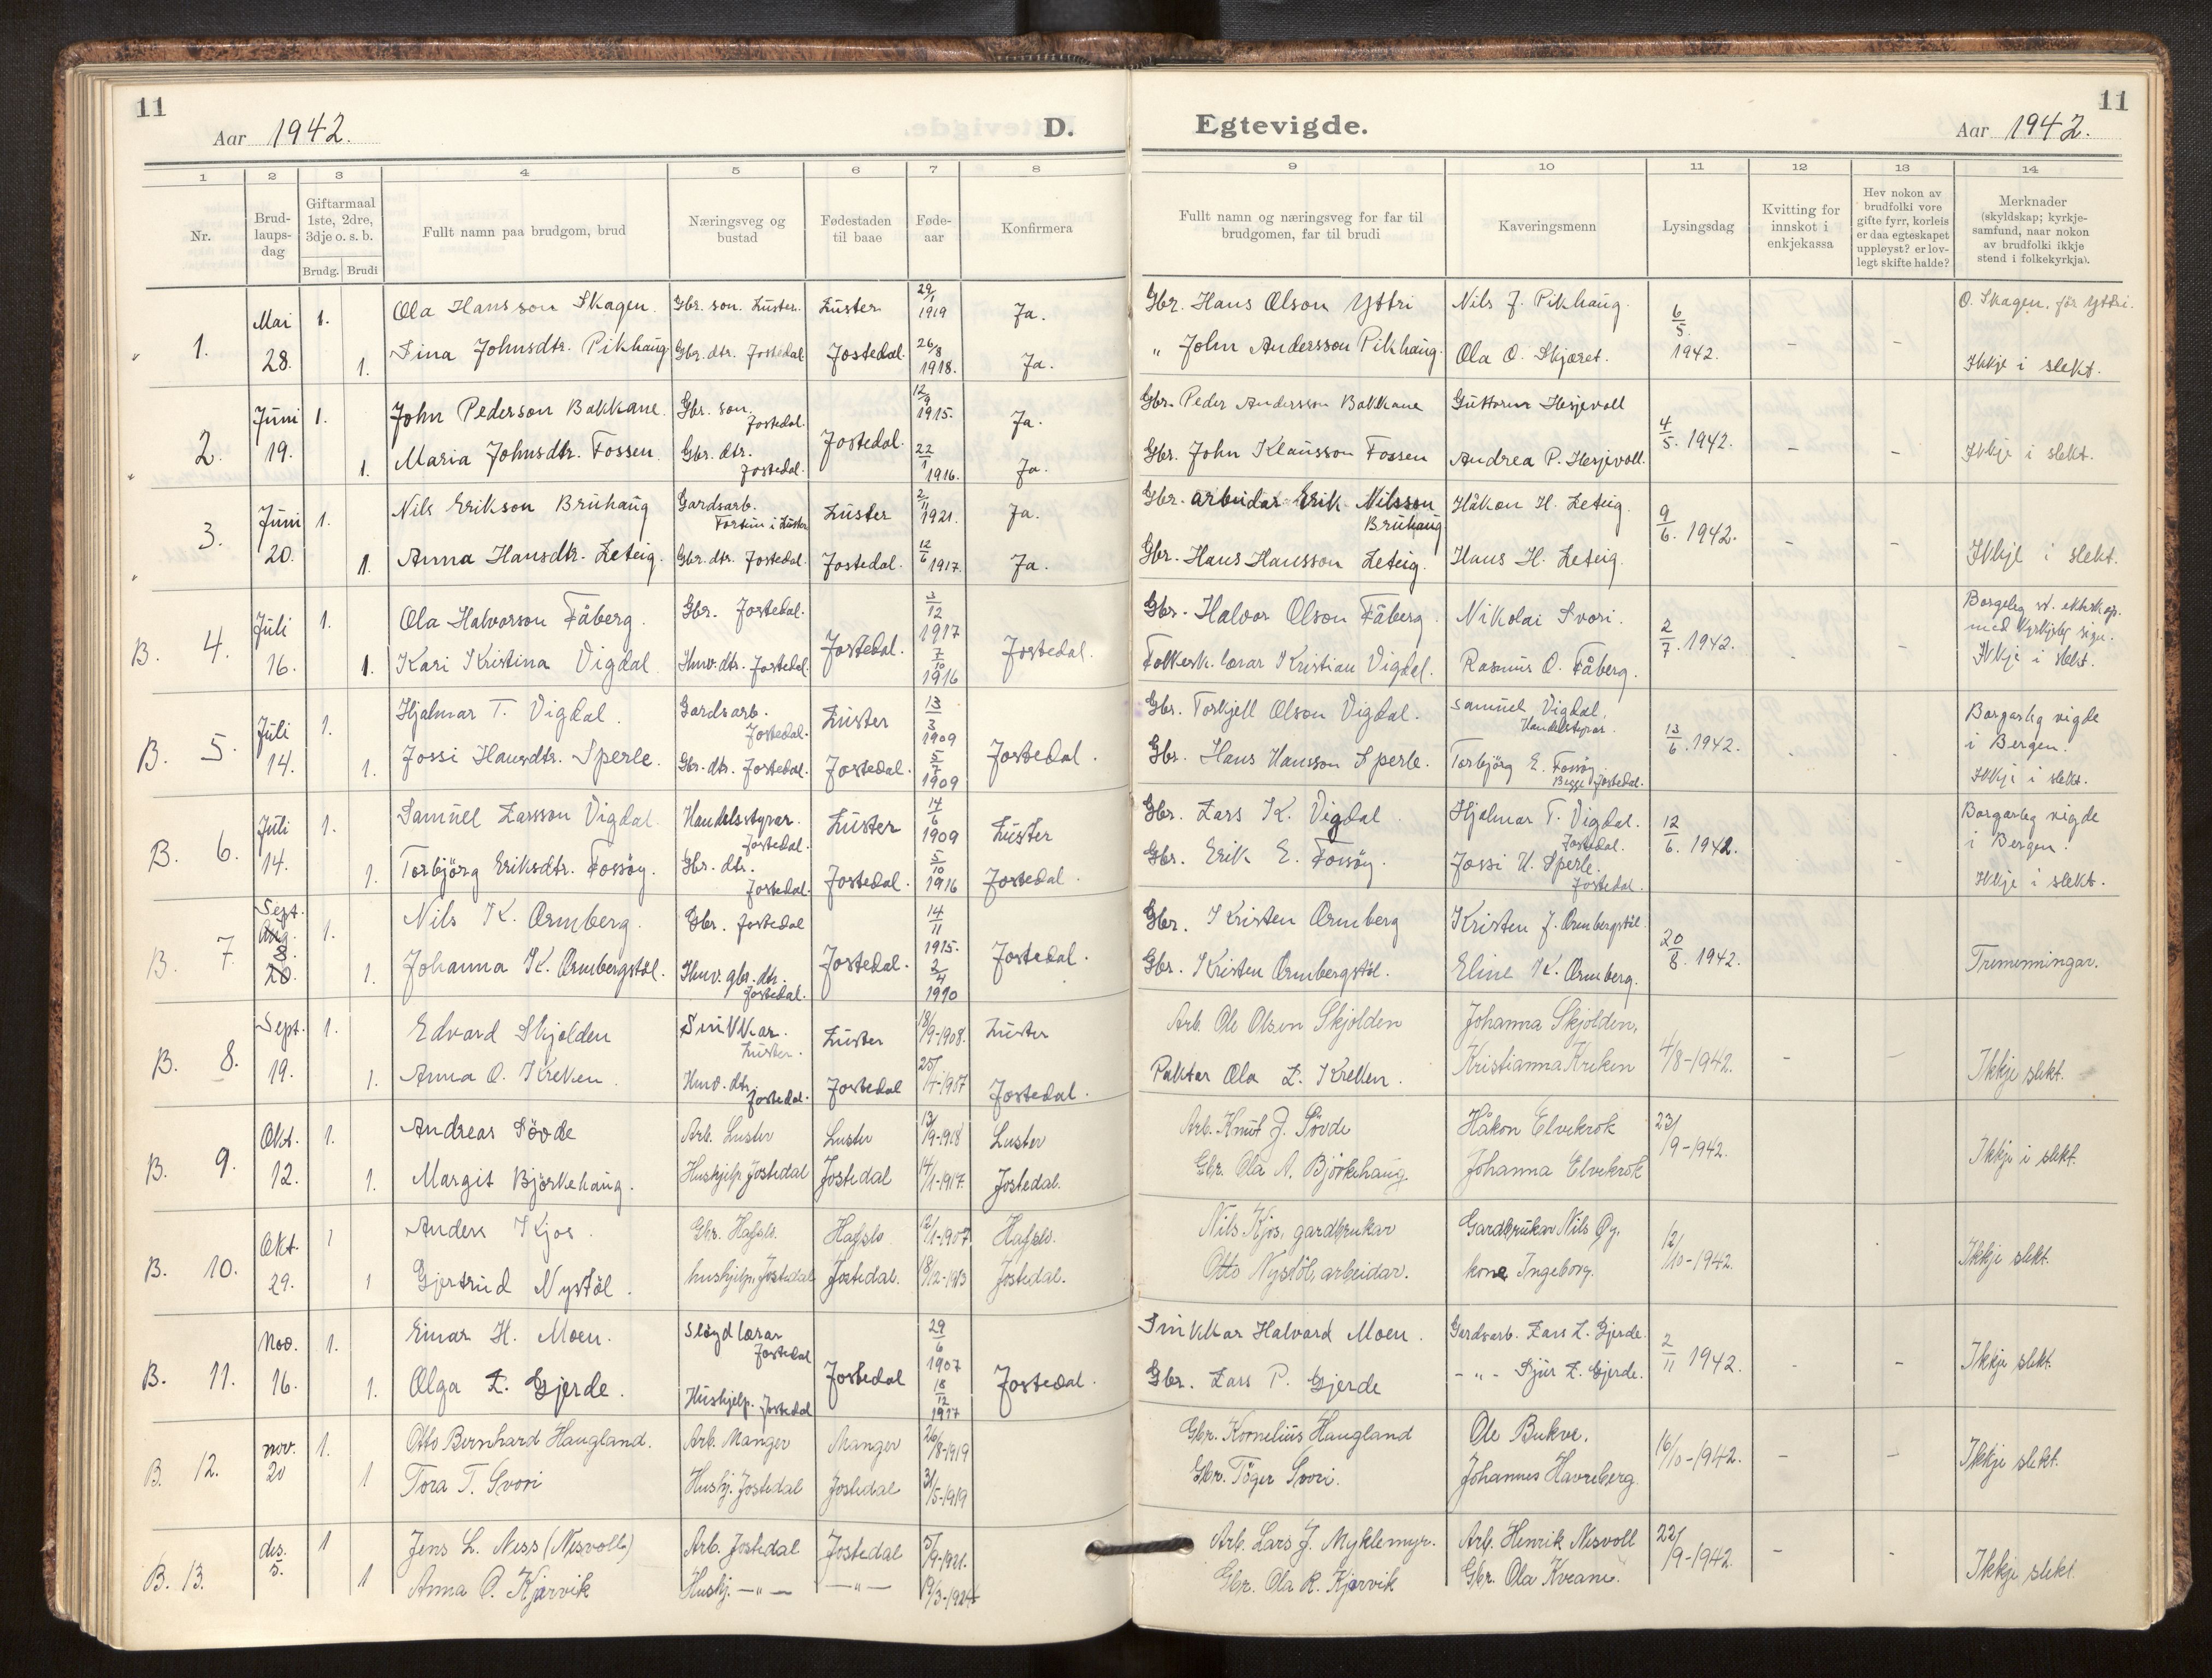 11
Aar 1942.
D.
1 2 3 4 5 6 7 8
Nr.
Brud-
laups-
dag
Giftarmaal
1ste, 2dre,
3dje o. s. b.
Brudg. Brudi
Fullt namn paa brudgom, brud
Næringsveg og
bustad
Fødestaden
til baae
Føde-
aar
Konfirmera
1. Mai 28. 1. Ola Hansson Skagen. Gbr. son. Luster. Luster 29/1 1919 Ja.
1. Sina Johnsdtr. Pikhaug Gbr. dtr. Jostedal Jostedal. 26/8 1918. Ja.
2. Juni 19. 1. John Pederson Bakkane. Gbr. son. Jostedal. Jostedal. 12/9 1915. Ja.
1. Maria Johnsdtr. Fossen. Gbr. dtr. Jostedal. 22/1 1916. Ja.
3. Juni 20. 1. Nils Erikson Bruhaug Gardsarb. Fortun i Luster Luster 2/11 1921. Ja.
1. Anna Hansdtr. Leteig. Gbr. dtr. Jostedal. Jostedal. 12/6 1917. Ja.
B. 4. Juli 16. 1. Ola Halvorson Fåberg. Gbr. Jostedal. Jostedal. 3/12 1917 Jostedal.
1. Kari Kristina Vigdal Hmv. dtr. Jostedal 7/10 1916
B. 5. Juli 14. 1. Hjalmar T. Vigdal. Gardsarb. Jostedal. Luster 13/3 1909 Jostedal.
1. Jossi Hansdtr. Sperle. Gbr. dtr. Jostedal. Jostedal. 5/7 1909
B. 6. Juli 14. 1. Samuel Larsson Vigdal. Handelsstyrar. Jostedal. Luster 14/6 1909 Luster
1. Torbjörg Eriksdtr. Fossöy. Gbr. dtr. Jostedal. Jostedal. 5/10 1916 Jostedal.
B. 7. Sept. Aug. 1. Nils K. Ormberg. Gbr. Jostedal Jostedal. 14/11 1915. Jostedal.
1. Johanna K. Ormbergstöl. Hmv. gbr. dtr. Jostedal. 2/4 1910
B. 8. Sept. 19. 1. Edvard Skjolden Snikkar. Luster. Luster 18/9-1908. Luster
1. Anna O. Kreken. Hmv. dtr. Jostedal. Jostedal 25/4-1907 Jostedal.
B. 9. Okt. 12. 1. Andreas Søvde Arb. Luster Luster 13/9-1918 Luster
1. Margit Bjørkehaug. Hushjelp Jostedal Jostedal 14/1-1917. Jostedal.
B. 10. Okt. 29. 1 Anders Kjos. Gbr. Hafslo. Hafslo 12/1-1907 Hafslo.
1 Gjertrud Nystöl. hushjelp. Jostedal Jostedal. 18/12-1913 Jostedal.
B. 11. Nov. 16. 1. Einar H. Moen. Sløydlærar Jostedal Jostedal 29/6 1907 Jostedal.
1. Olga L. Gjerde. Hushjelp. Jostedal 18/12 1917
B. 12. nov. 20 1. Otto Bernhard Haugland. Arb. Manger Manger 26/8-1919
1 Tora T. Svori Hushj. Jostedal Jostedal 31/5-1919
B. 13. des. 5. 1 Jens L. Ness (Nesvoll) Arb. Jostedal Jostedal 5/9-1921.
1 Anna O. Kjærvik Hushj. —"— —"— 19/3-1924
11
Egtevigde.
Aar 1942.
9 10 11 12 13 14
Fullt namn og næringsveg for far til
brudgomen, far til brudi
Kaveringsmenn
Lysingsdag
Kvitting for
innskot i
enkjekassa
Hev nokon av
brudfolki vore
gifte fyrr, korleis
er daa egteskapet
uppløyst? er lov-
legt skifte halde?
Merknader
(skyldskap; kyrkje-
samfund, naar nokon
av brudfolki ikkje
stend i folkekyrkja).
Gbr. Hans Olson Yttri Nils J. Pikhaug. 6/5. 1942. - - O. Skagen, før Yttri.
" John Andersson Pikhaug. Ola O. Skjæret. Ikkje i slekt.
Gbr. Peder Andersson Bakkane Guttorm Hesjevoll 4/5. 1942. - -
Gbr. John Klausson Fossen Andrea P. Hesjevoll. Ikkje i slekt.
Gbr. arbeidar Erik Nilsson Bruhaug Håkon H. Leteig. 9/6. 1942. - -
Gbr. Hans Hansson Leteig. Hans H. Leteig. Ikkje i slekt.
Gbr. Halvor Olson Fåberg. Nikolai Svori. 2/7. 1942. - -
Folkesk. lærar Kristian Vigdal. Rasmus O. Fåberg. Ikkje i slekt.
Gbr. Torkjell Olson Vigdal. Samuel Vigdal, Handelstyrar. 13/6. 1942. - - Borgarleg vigde
i Bergen.
Gbr. Hans Hansson Sperle. Torbjörg E. Fossöy. Begge Jostedal. Ikkje i slekt.
Gbr. Lars K. Vigdal Hjalmar T. Vigdal. Jostedal. 12/6. 1942. - - Borgarleg vigde
i Bergen.
Gbr. Erik E. Fossöy. Jossi H. Sperle. Jostedal. Ikkje i slekt.
Gbr. Kristen Ormberg Kristen J. Ormbergstöl 20/8. 1942.
Gbr. Kristen Ormbergstöl. Eline K. Ormberg. Tremenningar.
Arb. Ole Olsen Skjolden Johanna Skjolden, 4/8-1942. - -
Paktar Ola L. Kreken. Kristianna Kreken Ikkje slekt.
Arb. Knut J. Søvde Håkon Elvekrok 23/9-1942.
Gbr. Ola A. Bjørkehaug. Johanna Elvekrok Ikkje i slekt.
Nils Kjos, gardbrukar Gardbrukar Nils Øy. 12/10-1942.
Otto Nystöl, arbeidar. kone Ingeborg. Ikkje slekt.
Snikkar Halvard Moen. Gardsarb. Lars L. Gjerde. 2/11 1942. - -
Gbr. Lars P. Gjerde - " - Sjur L. Gjerde. Ikkje slekt.
Gbr. Kornelius Haugland Ole Bukve. 16/10-1942. - -
Gbr. Tøger Svori. Johannes Havreberg. Ikkje slekt.
Arb. Lars J. Myklemyr. Arb. Henrik Nesvoll 22/9-1942. - -
Gbr. Ola R. Kjærvik Gbr. Ola Kveane. Ikkje slekt.